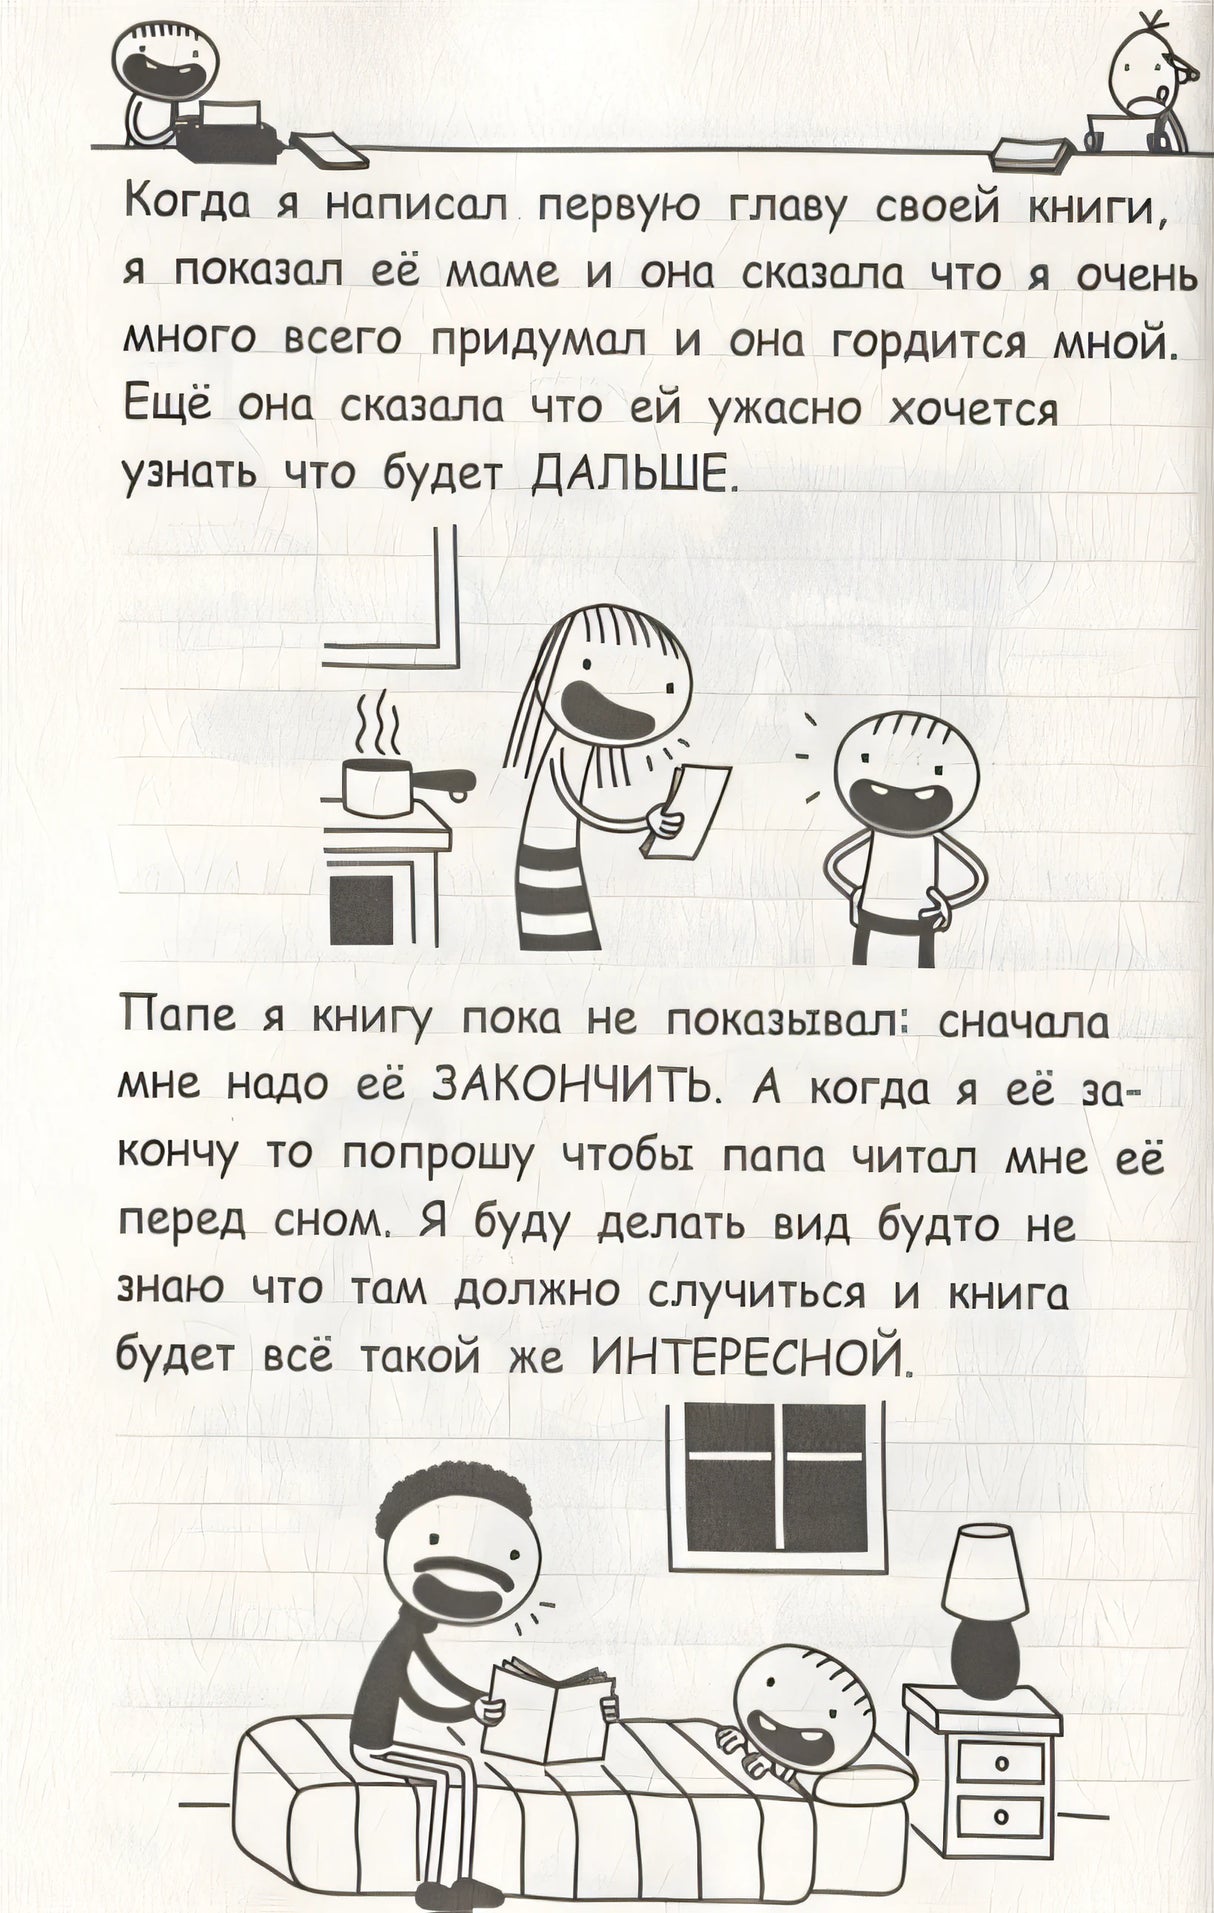 Когда я написал первую главу своей книги,
я показал её маме и она сказала что я очень
много всего придумал и она гордится мной.
Ещё она сказала что ей ужасно хочется
узнать что будет ДАЛЬШЕ.
Папе я книгу пока не показывал: сначала
мне надо её ЗАКОНЧИТЬ. А когда я её за-
кончу то попрошу чтобы папа читал мне её
перед сном. Я буду делать вид будто не
знаю что там должно случиться и книга
будет всё такой же ИНТЕРЕСНОЙ.